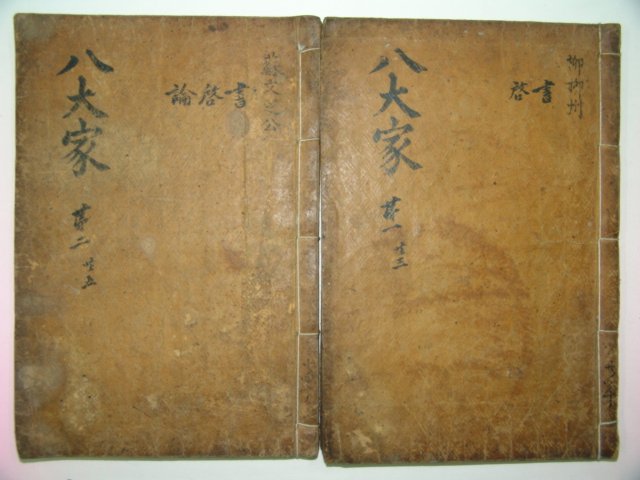 柳柳州
書
啓
八大家
第一
廿三
蘇文忠公
書啓論
八大家
第二
廿五